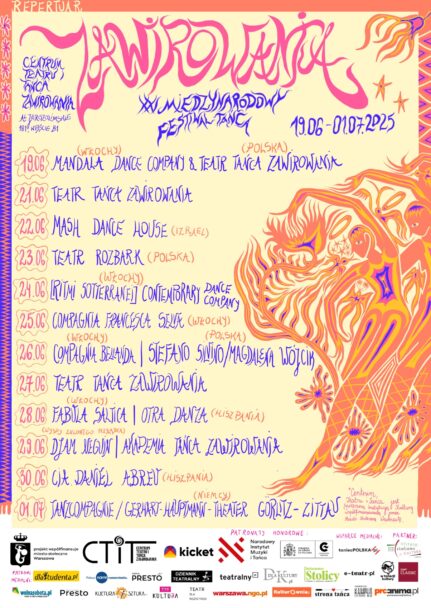 REPERTUAR
ZAWIROWANIA
CENTRUM
TEATRU I
TAŃCA
ZAWIROWANIA
XXI MIĘDZYNARODOWY
FESTIWAL TAŃCA
19.06 - 01.07.2025
(WŁOCHY) (POLSKA)
19.06 MANDALA DANCE COMPANY & TEATR TAŃCA ZAWIROWANIA
21.06 TEATR TAŃCA ZAWIROWANIA
22.06 MASH DANCE HOUSE (IZRAEL)
23.06 TEATR ROZBARK (POLSKA)
(WŁOCHY)
24.06 [RITMI SOTTERRANEI] CONTEMPORARY DANCE COMPANY
25.06 COMPAGNIA FRANCESCA SELVA (WŁOCHY)
(WŁOCHY) (POLSKA)
26.06 COMPAGNIA BELLANDA | STEFANO SILVINO/MAGDALENA WÓJCIK
27.06 TEATR TAŃCA ZAWIROWANIA
(WŁOCHY)
28.06 FABULA SALTICA | OTRA DANZA (HISZPANIA)
29.06 DJAM NEGUIN | AKADEMIA TAŃCA ZAWIROWANIA
30.06 CIA DANIEL ABREU (HISZPANIA)
(NIEMCY)
01.07 TANZCOMPAGNIE / GERHART-HAUPTMANN-THEATER GÖRLITZ-ZITTAU
PATRONATY HONOROWE:
PARTNER:
projekt współfinansuje
miasto stołeczne
Warszawa
CTiT
kicket
Narodowy
Instytut
Muzyki
i Tańca
taniecPOLSKA
dlaStudenta.pl
PRESTO
DZIENNIK
TEATRALNY
teatralny
Stolicy
e-teatr.pl
Presto
KULTURA
warszawa.ngo.pl
strefa tańca